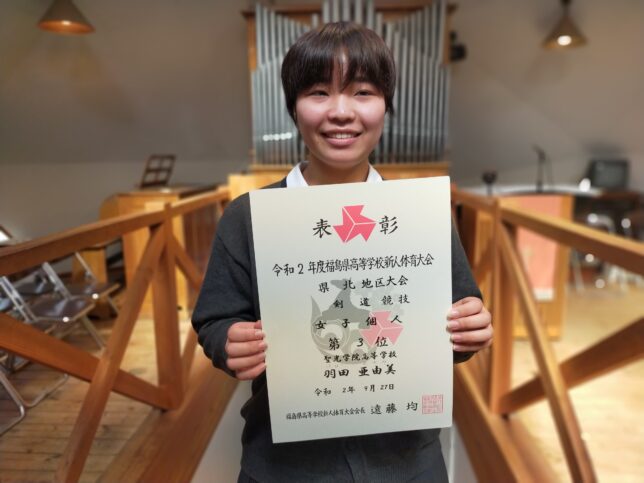 表彰
令和2年度福島県高等学校新人体育大会
県北地区大会
剣道競技
女子個人
第3位
聖光学院高等学校
羽田 亜由美
令和 2年 9月 27日
福島県高等学校新人体育大会会長 遠藤 均